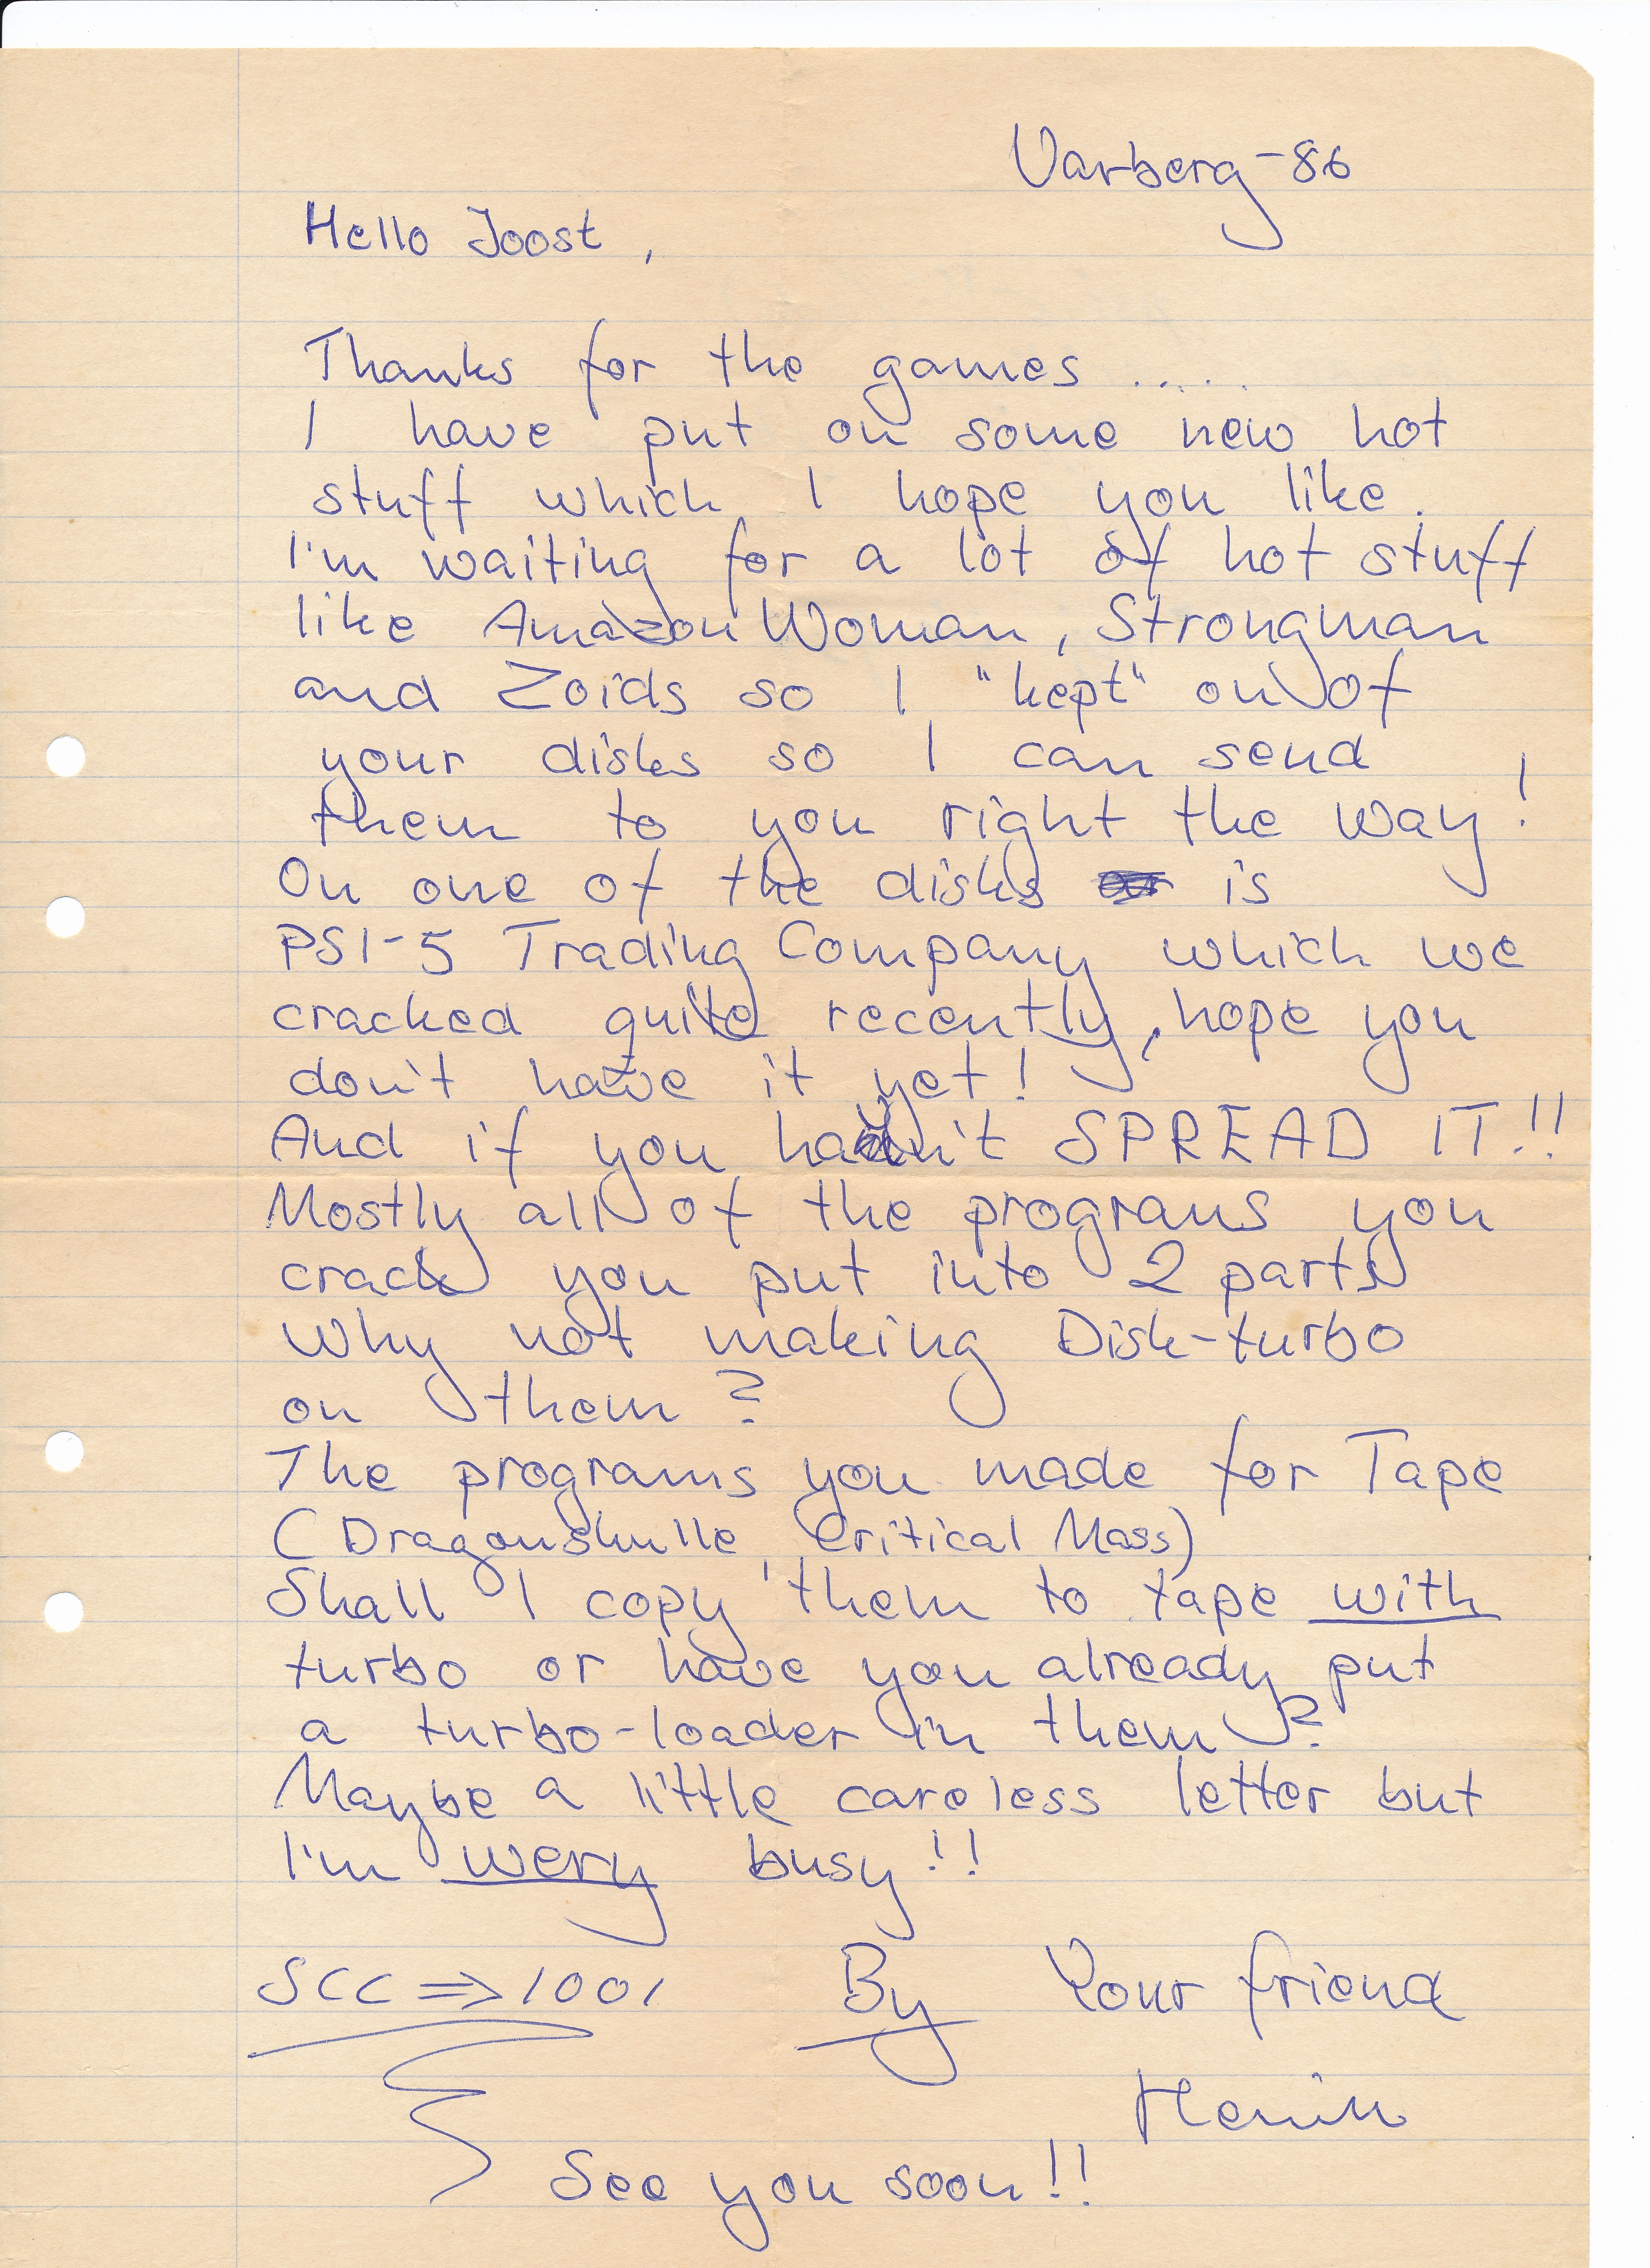 Varberg-86
Hello Joost,
Thanks for the games .....
I have put on some new hot
stuff which I hope you like.
I'm waiting for a lot of hot stuff
like Amazon Woman, Strongman
and Zoids so I "kept" on of
your disks so I can send
them to you right the way!
On one of the disks is
PSI-5 Trading Company which we
cracked quite recently, hope you
don't have it yet!
And if you hadn't SPREAD IT!!
Mostly all of the programs you
crack you put into 2 parts
Why not making Disk-turbo
on them?
The programs you made for Tape
(Dragonskulle, Critical Mass)
Shall I copy them to tape with
turbo or have you already put
a turbo-loader in them?
Maybe a little careless letter but
I'm wery busy!!
SCC => 1001 By Your friend
Henrik
See you soon!!